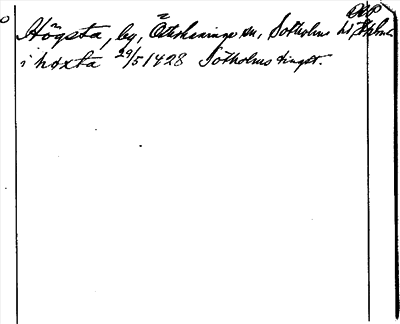 DAP
Högsta, by, Österhaninge sn, Sotholms hd, Sthlm
i høxta 29/5 1428 Sotholms tinget.